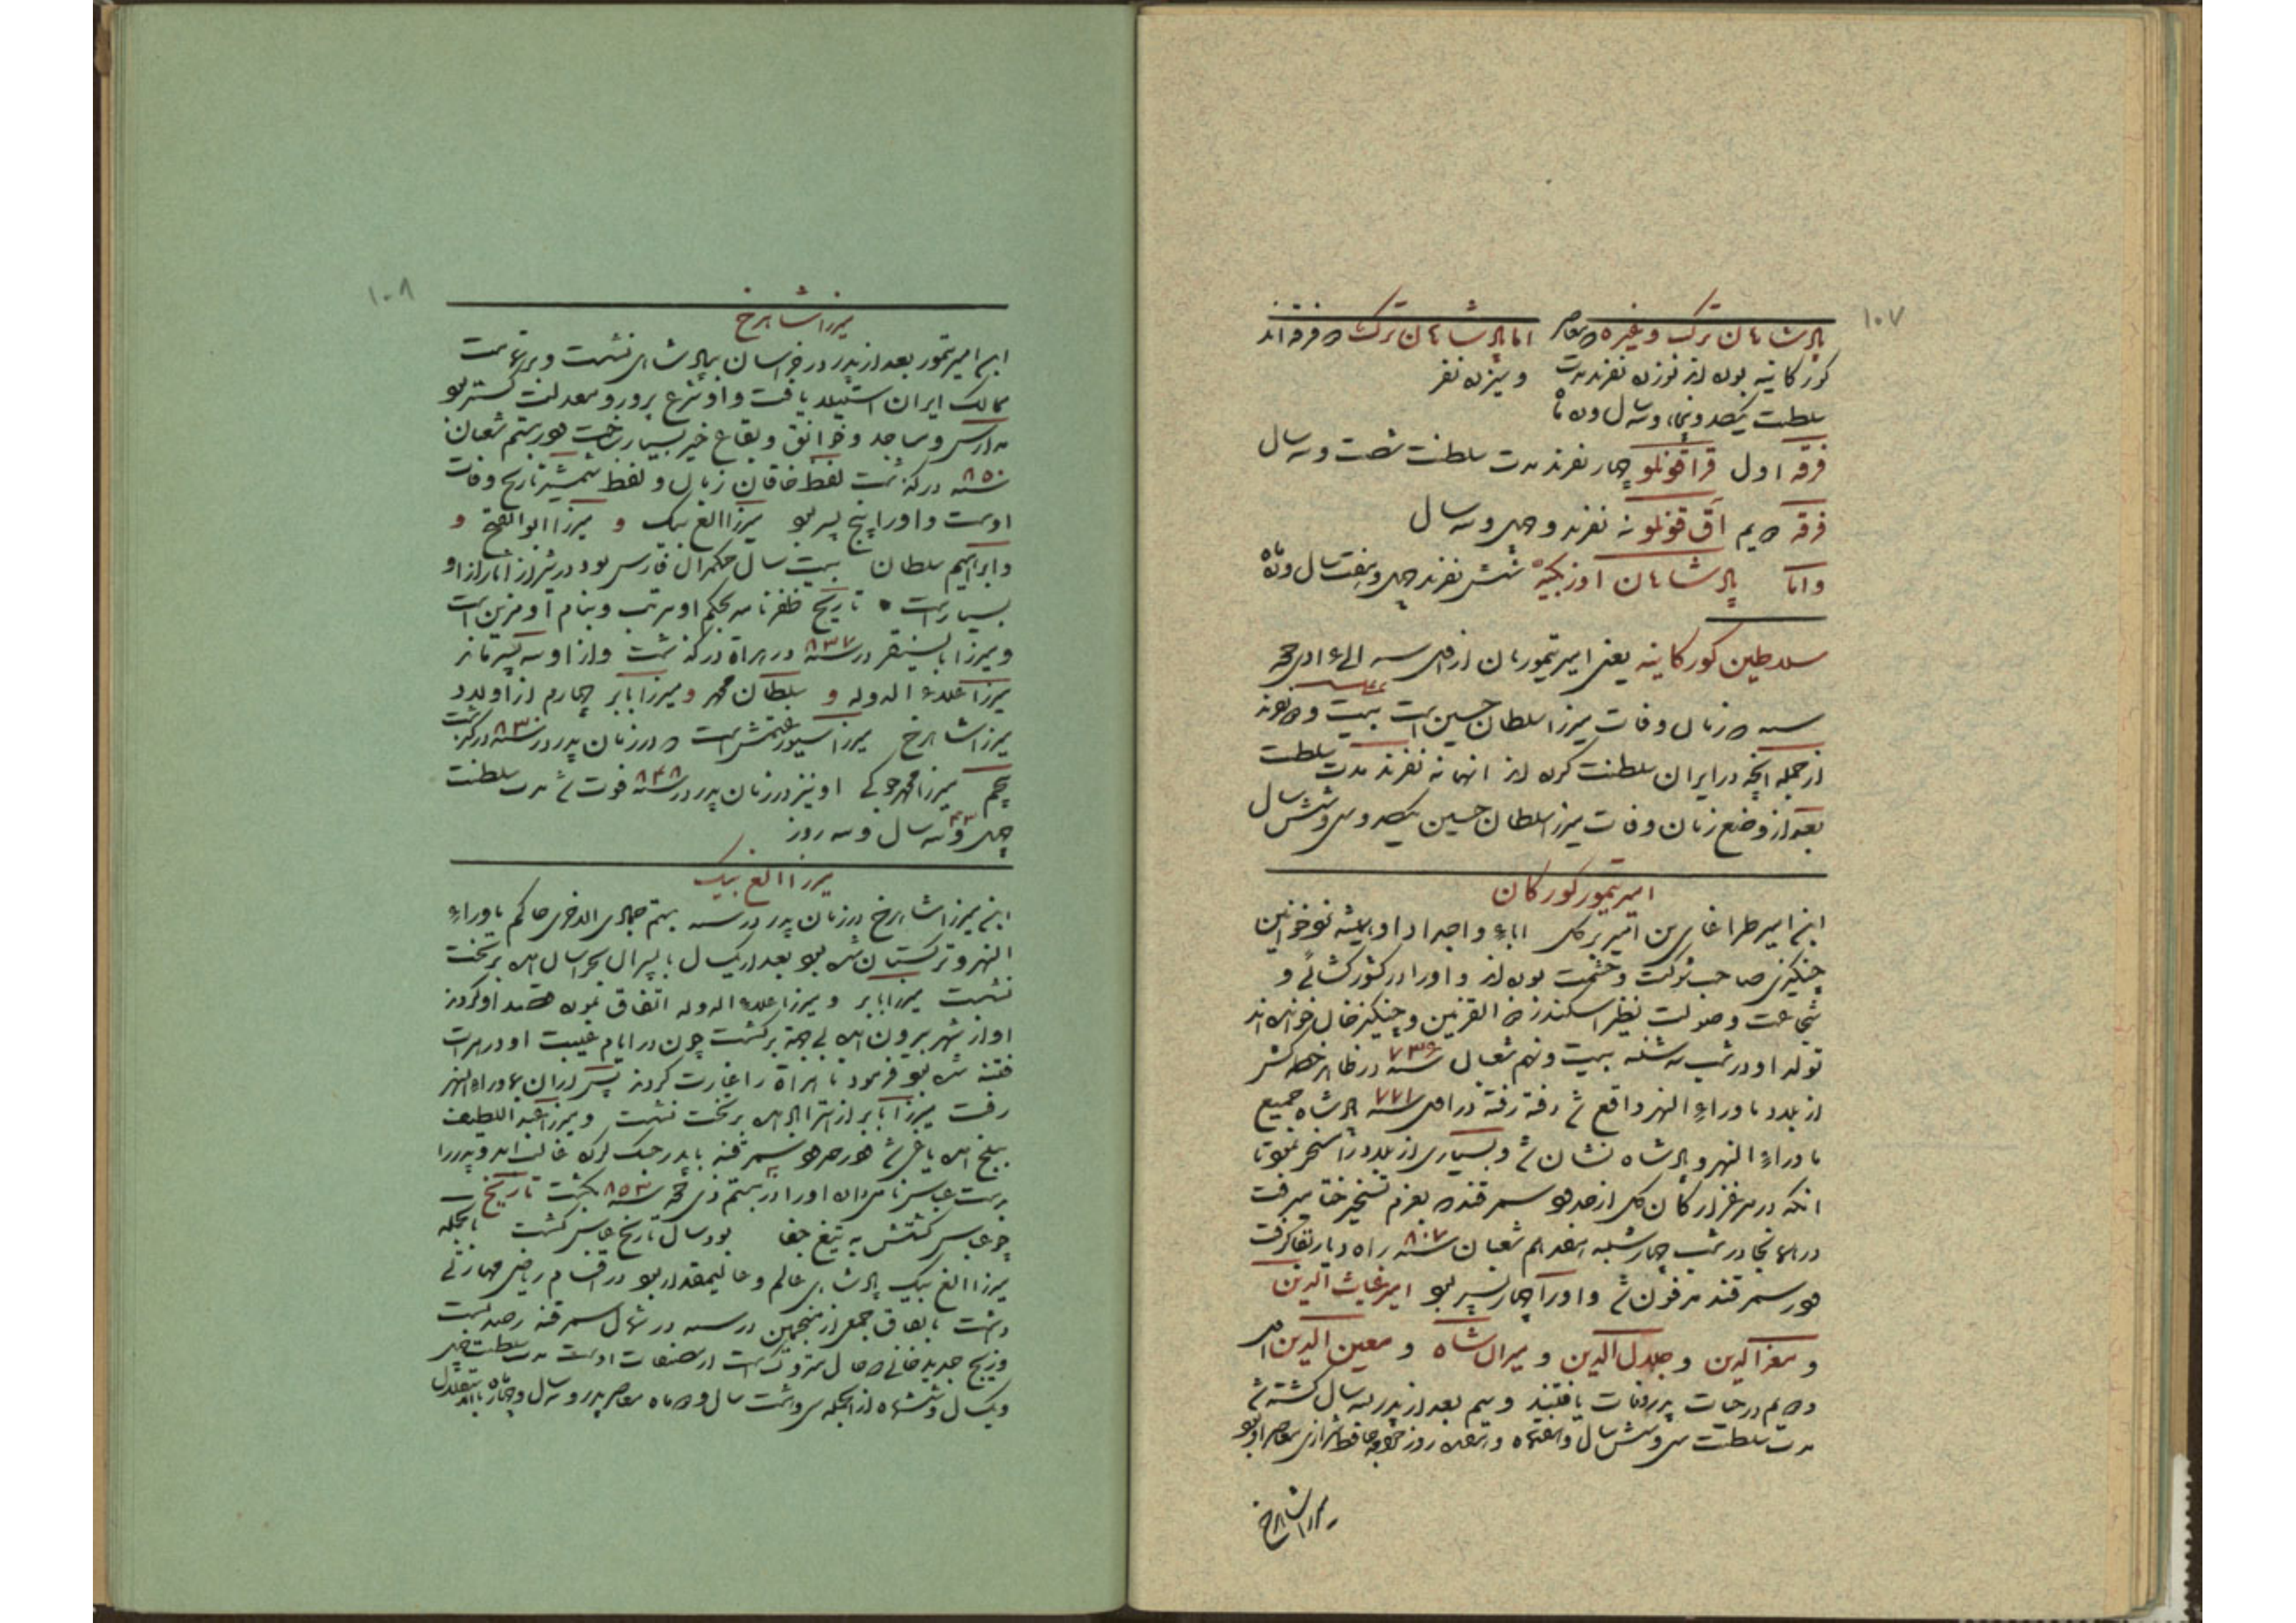 ۱۰۷
پادشاهان ترک و غیره که معاصر اما پادشاهان ترک دو فرقه اند
کورکانیه بوده اند نوزده نفرند مدت و سیزده نفر
سلطنت یکصد و پنجاه و سه سال و ده ماه
فرقه اول قراقونلو چهار نفرند مدت سلطنت شصت و سه سال
فرقه دویم آق قونلو نه نفرند و چهل و سه سال
واما پادشاهان اوزبکیه شش نفرند چهل و هفت سال و نه ماه
سلاطین کورکانیه یعنی امیر تیموریان از سنه الی
سنه که زمان وفات میرزا سلطان حسین است بیست و نفرند
از جمله آنچه در ایران سلطنت کرده اند انها نه نفرند مدت سلطنت
بعد از وضع زمان وفات میرزا سلطان حسین یکصد و سی و شش سال
امیر تیمور کورکان
ابن امیر طراغای بن امیر برکل اباء و اجداد او همیشه نزد خوانین
چنکیزی صاحب شوکت و حشمت بوده اند و او را در کشور کشائی و
شجاعت و صولت نظیر اسکندر ذو القرنین و چنکیز خان خوانده اند
تولد او در شب سه شنبه بیست و نهم شعبان سنه ۷۳۶ در ظاهر خطه کش
از بلاد ماوراء النهر واقع شد رفته رفته در سنه ۷۷۱ پادشاه جمیع
ماوراء النهر و پادشاه نشان شد و بسیاری از بلاد را مسخر نمود تا
انکه در مرغزار کان کل از حدود سمرقند بعزم تسخیر ختا میرفت
در همانجا در شب چهارشنبه هفدهم شعبان سنه ۸۰۷ راه دیار بقا گرفت
در سمرقند مدفون شد و او را چهار پسر بود امیر غیاث الدین
و معز الدین و جلال الدین و میران شاه و معین الدین
و دویم در حیات پدر وفات یافتند و سیم بعد از پدر سه سال کشته شد
مدت سلطنت سی و شش سال و هفتماه و روز خواجه حافظ شیرازی معاصر او بود
میرزا شاهرخ
۱۰۸
میرزا شاهرخ
ابن امیر تیمور بعد از پدر در خراسان بپادشاهی نشست و بر تمامت
ممالک ایران استیلا یافت و او شرع پرور و معدلت گستر بود
مدارس و مساجد و خوانق و بقاع خیر بسیار ساخت در بیستم شعبان
سنه ۸۵۰ درگذشت لفظ خاقان زمان و لفظ شمشیر تاریخ وفات
اوست و او را پنج پسر بود میرزا الغ بیک و میرزا ابوالفتح و
و ابراهیم سلطان بیست سال حکمران فارس بود در شیراز آثار از او
بسیار است تاریخ ظفرنامه بحکم او مرتب و بنام او مزین است
و میرزا بایسنقر در سنه ۸۳۷ در هراة درگذشت و از او سه پسر ماند
میرزا علاء الدوله و سلطان محمد و میرزا بابر چهارم از اولاد
میرزا شاهرخ میرزا سیورغتمش است که در زمان پدر در سنه ۸۳۰ درگذشت
پنجم میرزا محمد جوکی او نیز در زمان پدر در سنه ۸۴۸ فوت شد مدت سلطنت
چهل و سه ۴۳ سال و سه روز
میرزا الغ بیک
ابن میرزا شاهرخ در زمان پدر در سنه بیستم جمادی الاخری حاکم ماوراء
النهر و ترکستان شده بود بعد از یکسال با پسران بخراسان آمده بر تخت
نشست میرزا بابر و میرزا علاء الدوله اتفاق نموده قصد او کردند
او از شهر بیرون آمده بی جهة برگشت چون در ایام غیبت او در هرات
فتنه شده بود فرمود تا هراة را غارت کردند پس از آن بماوراء النهر
رفت میرزا بابر از استراباد آمده بر تخت نشست و میرزا عبد اللطیف
ببلخ آمده یاغی شد در حدود سمرقند با پدر جنک کرده غالب آمد و پدر را
بدست عباس نامی داده او را در بیستم ذی حجه سنه ۸۵۳ بکشت تاریخ
چو عباس کشتش به تیغ جفا بود سال تاریخ عباس کشت بالجمله
میرزا الغ بیک پادشاهی عالم و عالیمقدار بود در اقسام ریاضی مهارتی
داشت باتفاق جمعی از منجمین در سنه در شمال سمرقند رصد بست
و زیج جدید خانی که حال متروک است از مصنفات اوست مدت سلطنت چهل
و یکسال و ششماه از انجمله سی و هشت سال و دو ماه معاصر پدر و سه سال و چهار ماه باستقلال